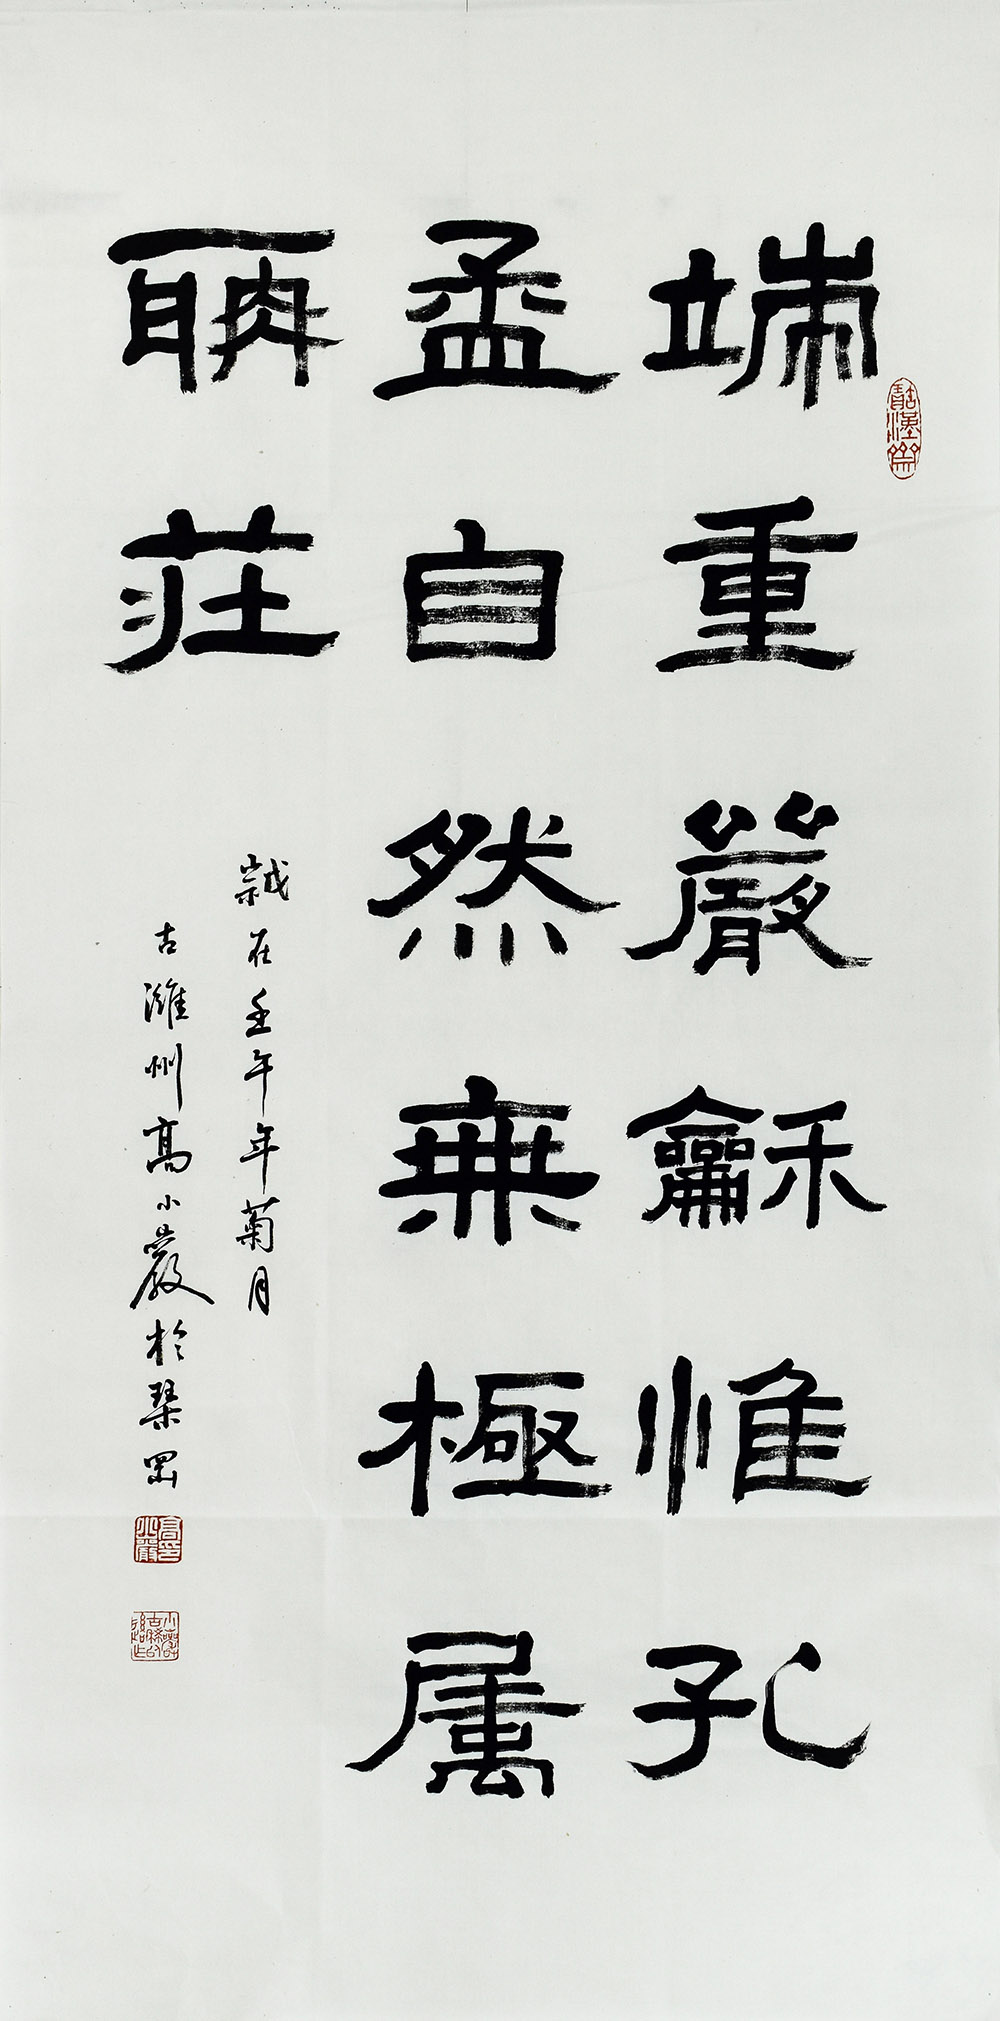 端重嚴龢惟孔
孟自然無極屬
聃莊
歲在壬午年菊月
古濰州高小巖於琴罡